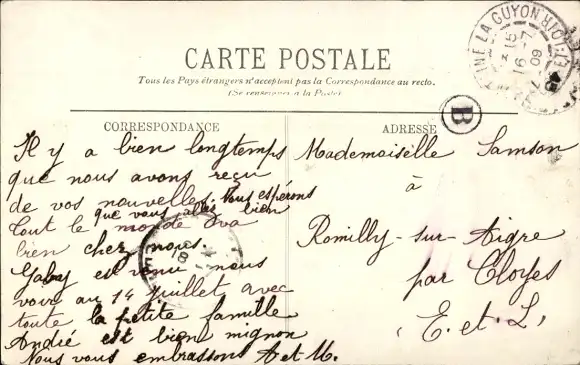 CARTE POSTALE
Tous les Pays étrangers n'acceptent pas la Correspondance au recto.
(Se renseigner à la Poste)
CORRESPONDANCE
Il y a bien longtemps
que nous avons reçu
de vos nouvelles. Nous espérons
que vous allez bien
Tout le monde va
bien chez nous.
Gabay est venu nous
voir au 14 Juillet avec
toute la petite famille
André est bien mignon
Nous vous embrassons A et M.
ADRESSE
Mademoiselle Samson
à
Romilly-sur-Aigre
par Cloyes
E. et L.
B
LA GUYON
15
16 -7
09
18